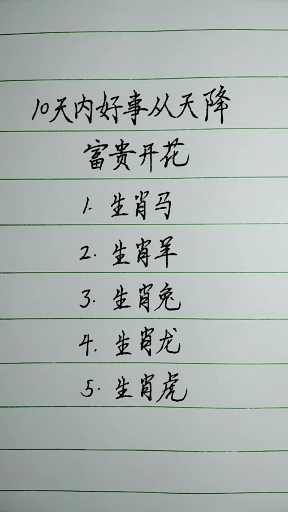 10天内好事从天降
富贵开花
1. 生肖马
2. 生肖羊
3. 生肖兔
4. 生肖龙
5. 生肖虎